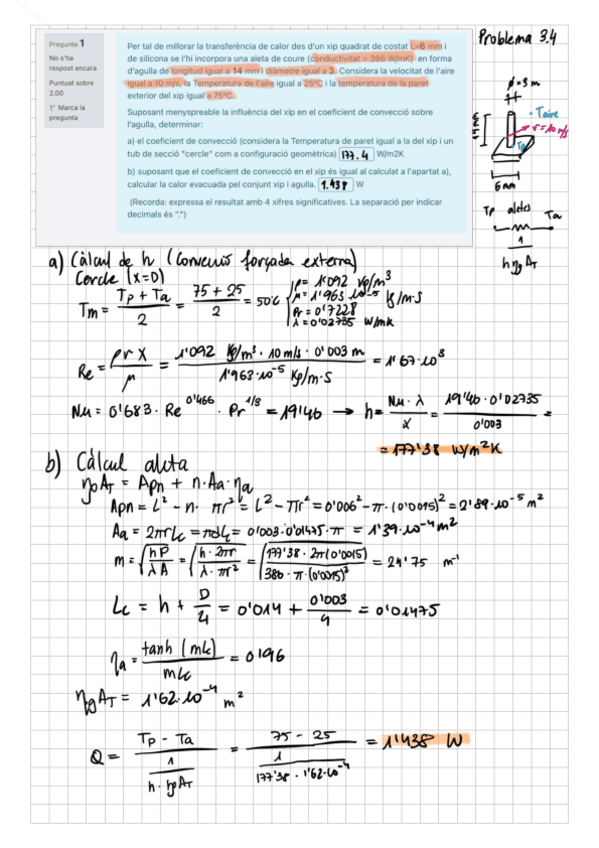 Pregunta 1
No s'ha
respost encara
Puntuat sobre
2,00
Marca la
pregunta
Per tal de millorar la transferència de calor des d'un xip quadrat de costat L=6 mm i
de silicona se l'hi incorpora una aleta de coure (conductivitat = 386 W/mK) en forma
d'agulla de longitud igual a 14 mm i diàmetre igual a 3. Considera la velocitat de l'aire
igual a 10 m/s, la Temperatura de l'aire igual a 25ºC i la temperatura de la paret
exterior del xip igual a 75ºC.
Suposant menyspreable la influència del xip en el coeficient de convecció sobre
l'agulla, determinar:
a) el coeficient de convecció (considera la Temperatura de paret igual a la del xip i un
tub de secció "cercle" com a configuració geomètrica) 177.4 W/m2K
b) suposant que el coeficient de convecció en el xip és igual al calculat a l'apartat a),
calcular la calor evacuada pel conjunt xip i agulla. 1.438 W
(Recorda: expressa el resultat amb 4 xifres significatives. La separació per indicar
decimals és ".")
Problema 3.4
ø=3 m
14 mm
Taire
v=10 m/s
Tp
6mm
Tp aletes Ta
1
hη₀A_T
a) Càlcul de h (Convecció forçada externa)
Cercle (x=D)
Tm = (Tp + Ta)/2 = (75 + 25)/2 = 50ºC
ρ = 1'092 kg/m³
μ = 1'963·10⁻⁵ kg/m·s
Pr = 0'7228
λ = 0'02735 W/mK
Re = ρvX/μ = (1'092 kg/m³ · 10 m/s · 0'003 m)/(1'963·10⁻⁵ kg/m·s) = 1'67·10³
Nu = 0'683 · Re^0'466 · Pr^1/3 = 19'46 → h = Nu·λ/x = (19'46·0'02735)/0'003 =
= 177'38 W/m²K
b) Càlcul aleta
η₀A_T = Apn + n·Aa·ηa
Apn = L² - n·πr² = L² - πr² = 0'006² - π·(0'0015)² = 2'89·10⁻⁵ m²
Aa = 2πrLc = πdLc = 0'003·0'01475·π = 1'39·10⁻⁴ m²
m = √(hP/λA) = √(h·2πr/λ·πr²) = √(177'38·2π(0'0015)/386·π·(0'0015)²) = 24'75 m⁻¹
Lc = h + D/4 = 0'014 + 0'003/4 = 0'01475
ηa = tanh(mLc)/mLc = 0'96
η₀A_T = 1'62·10⁻⁴ m²
Q = (Tp - Ta)/(1/(h·η₀A_T)) = (75 - 25)/(1/(177'38·1'62·10⁻⁴)) = 1'438 W